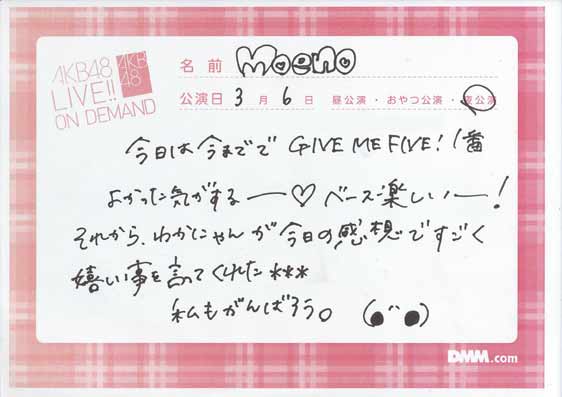 AKB48
LIVE!!
ON DEMAND
AKB
48
名前 Moeno
公演日 3月6日 昼公演・おやつ公演・夜公演
今日は今までで GIVE ME FIVE! 1番
よかった気がするー♡ ベース楽しいー!
それから、わかにゃんが今日の感想ですごく
嬉しい事を言ってくれた***
私もがんばろう。
DMM.com